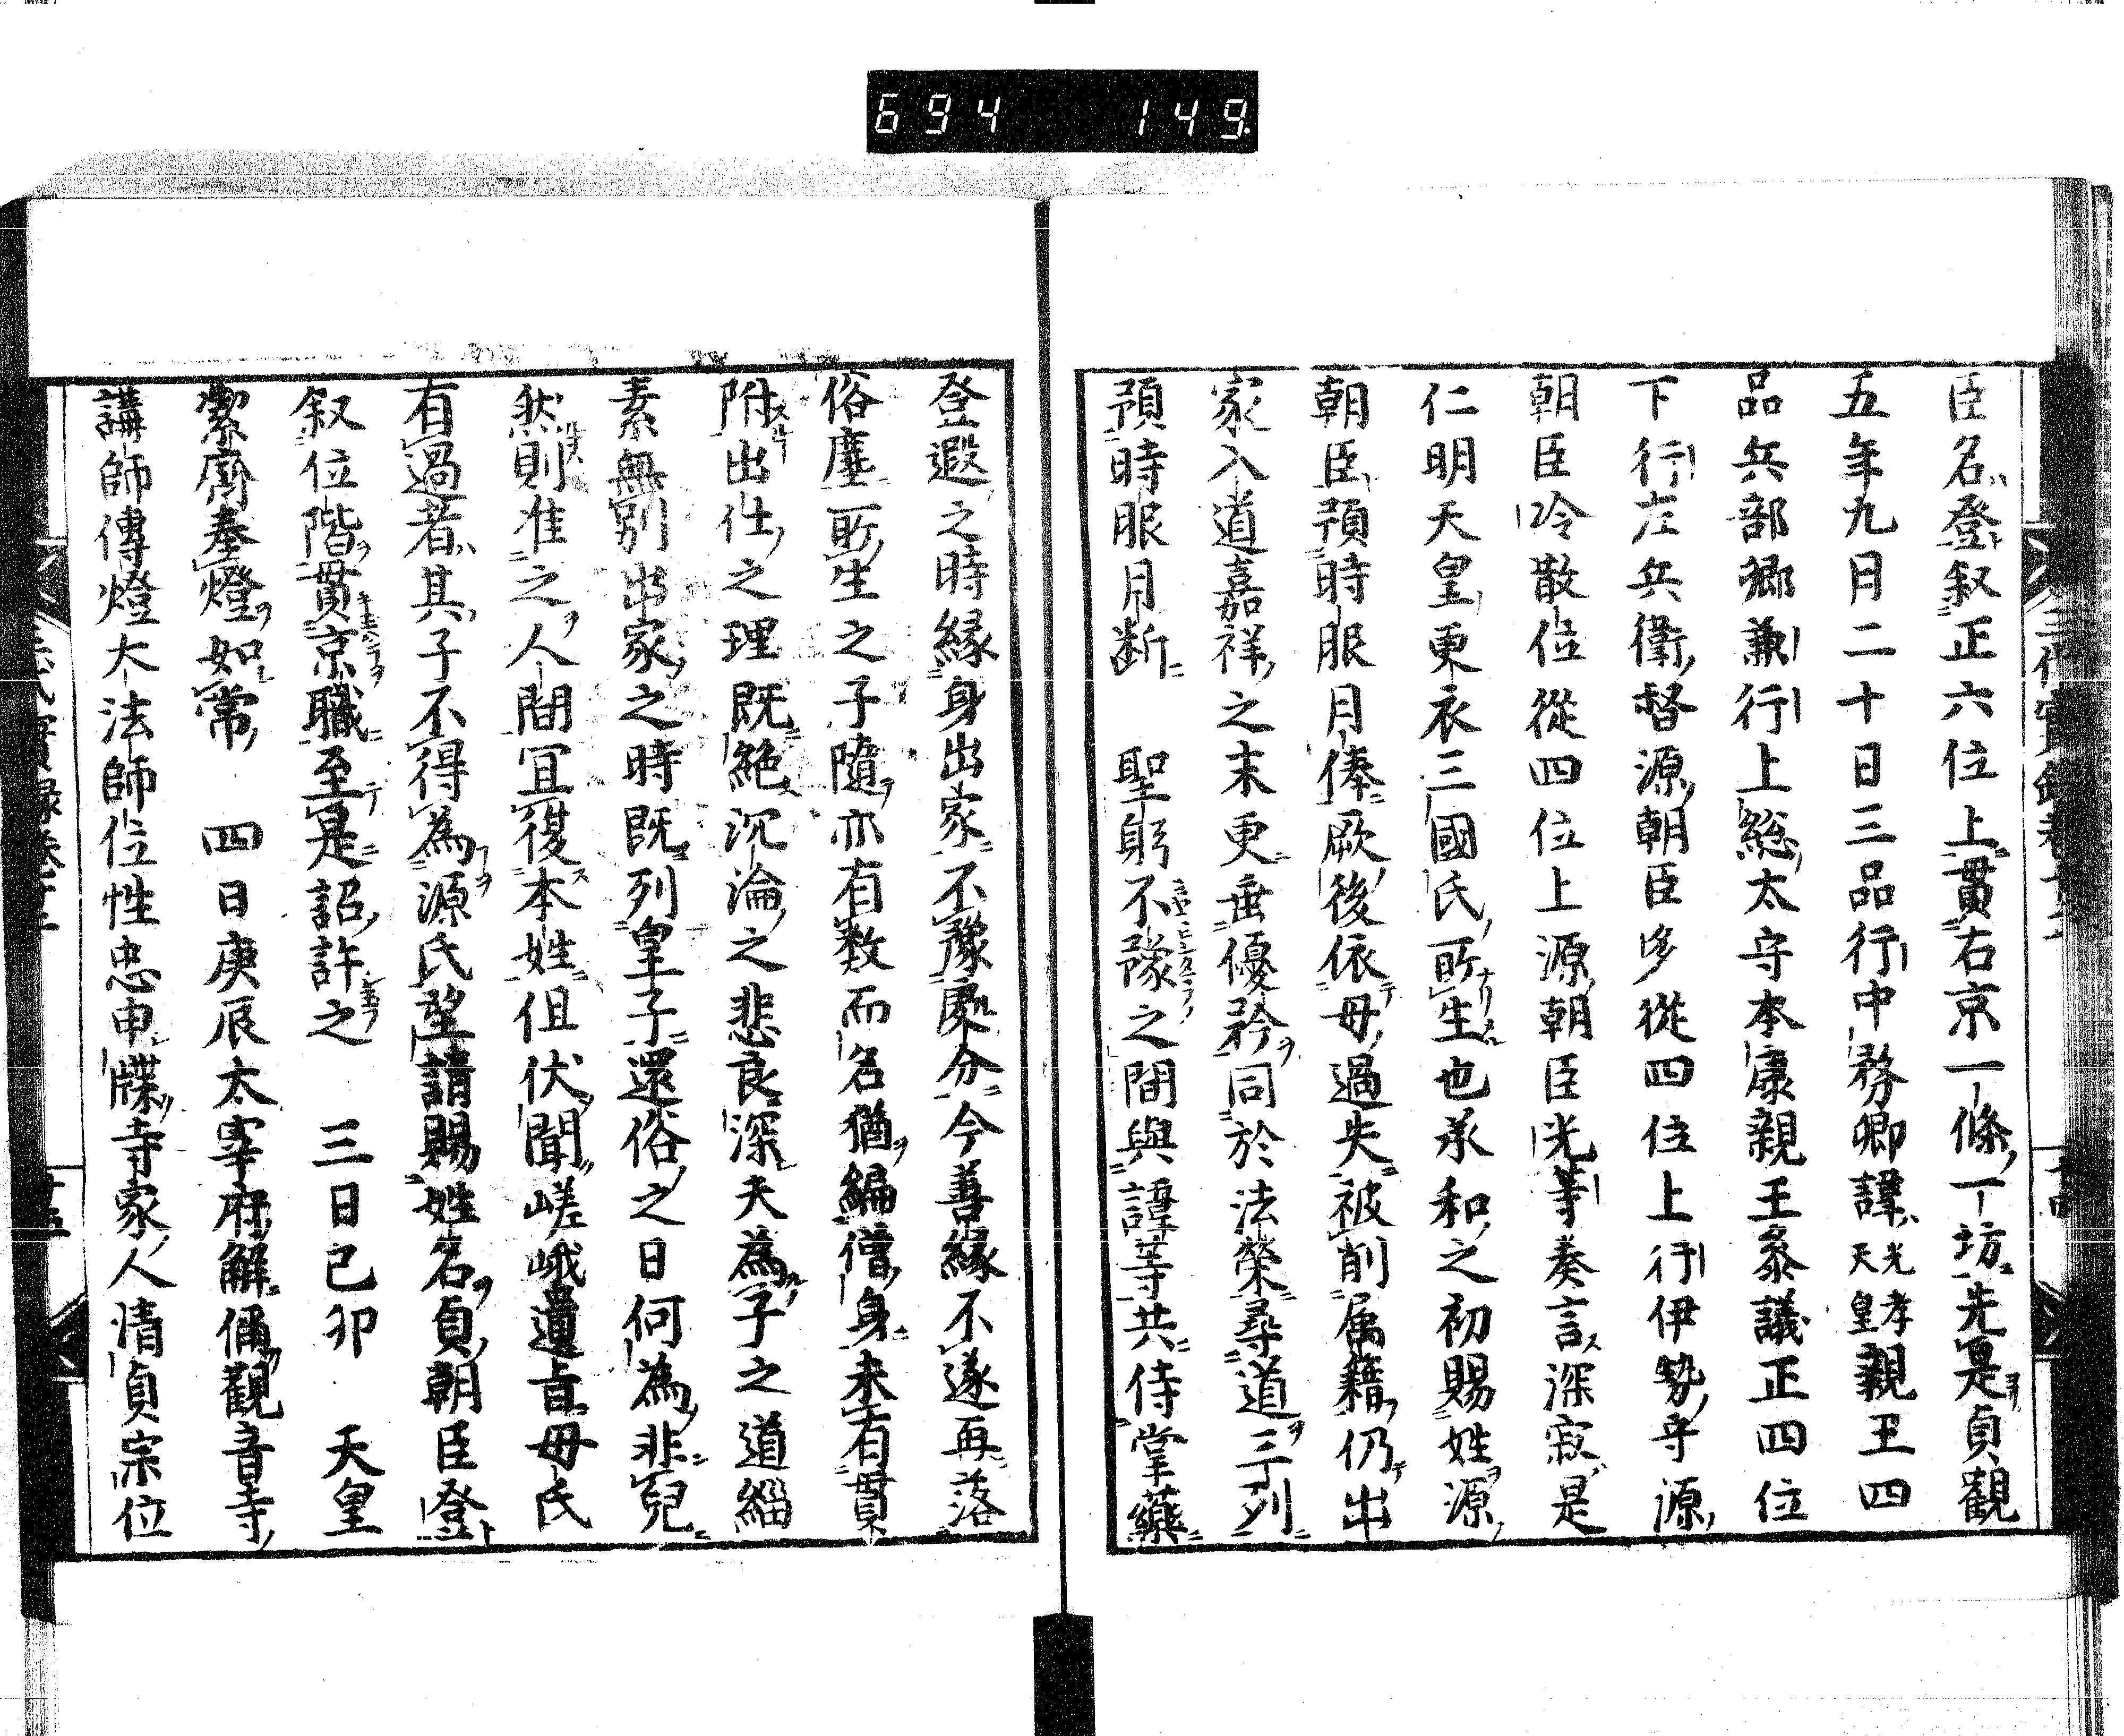 694 149.
臣名登叙正六位上貫右京一條一坊先是貞觀
五年九月二十日三品行中務卿諱光孝天皇親王四
品兵部鄉兼行上総太守本康親王叅議正四位
下行左兵衛督源朝臣多從四位上行伊勢守源
朝臣冷散位從四位上源朝臣光等奏言深寂是
仁明天皇更衣三國氏所生也承和之初賜姓源
朝臣預時服月俸厥後依母過失被削属籍仍出
家入道嘉祥之末更垂優矜同於法榮尋道三列
預時服月断　聖躬不豫之間與諱等共侍掌藥
登遐之時緣身出家不豫處分今善緣不遂再落
俗塵所生之子隨亦有数而名猶編僧身未有貫
附出仕之理既絶沉淪之悲良深夫為子之道緇
素無別出家之時既列皇子還俗之日何為非兒
然則准之人間冝復本姓但伏聞嵯峨遺旨母氏
有過者其子不得為源氏望請賜姓名貞朝臣登
叙位階貫京職至是詔許之　三日己卯　天皇
潔齋奉燈如常　四日庚辰太宰府解偁觀音寺
講師傳燈大法師位性忠申牒寺家人清貞宗位